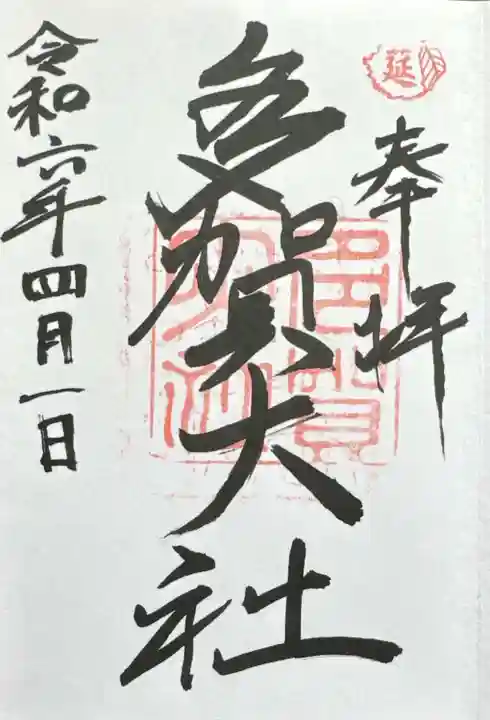 延
奉拝
多賀大社
多賀大社
令和六年四月一日